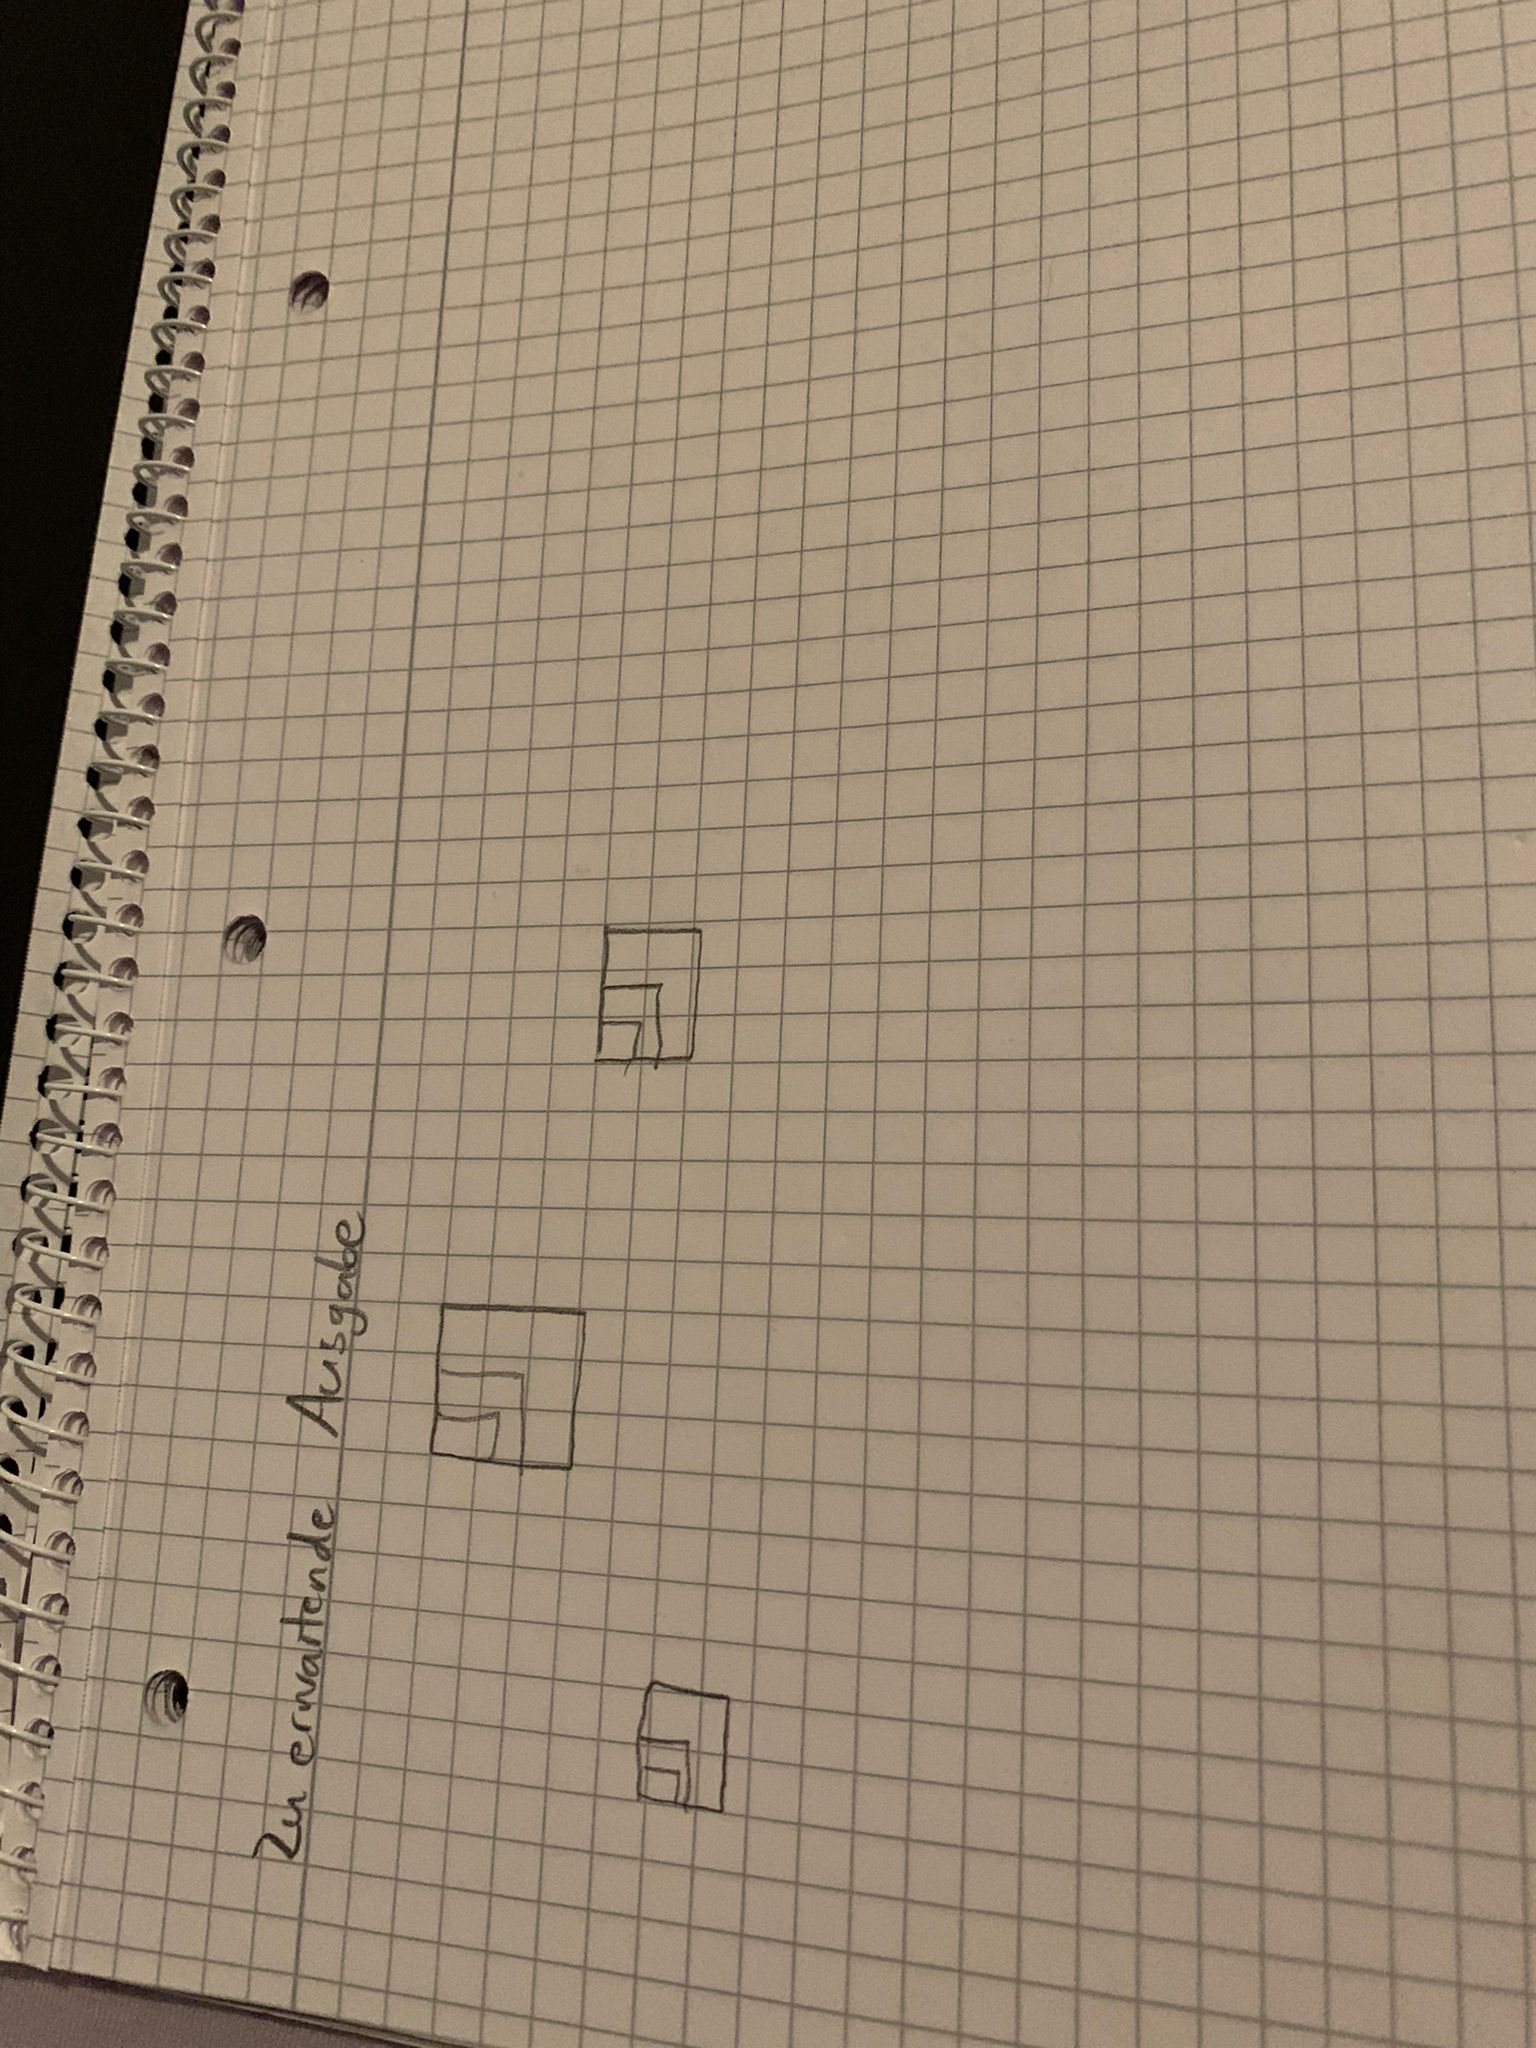 Zu erwartende Ausgabe